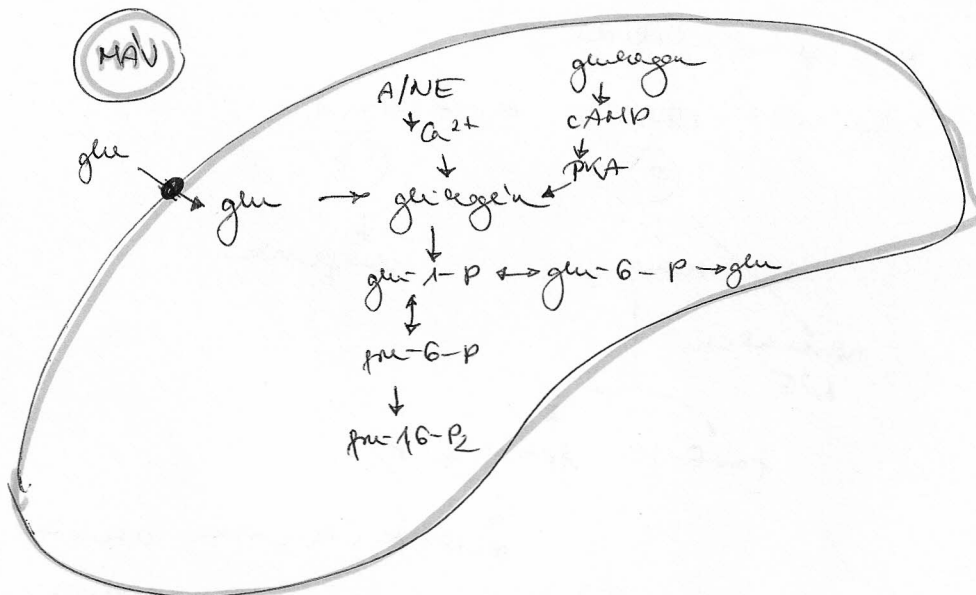 MÁJ
A/NE
glukagon
Ca²⁺
cAMP
PKA
glu
glu → glikogén
glu-1-P ↔ glu-6-P → glu
fru-6-P
fru-1,6-P₂